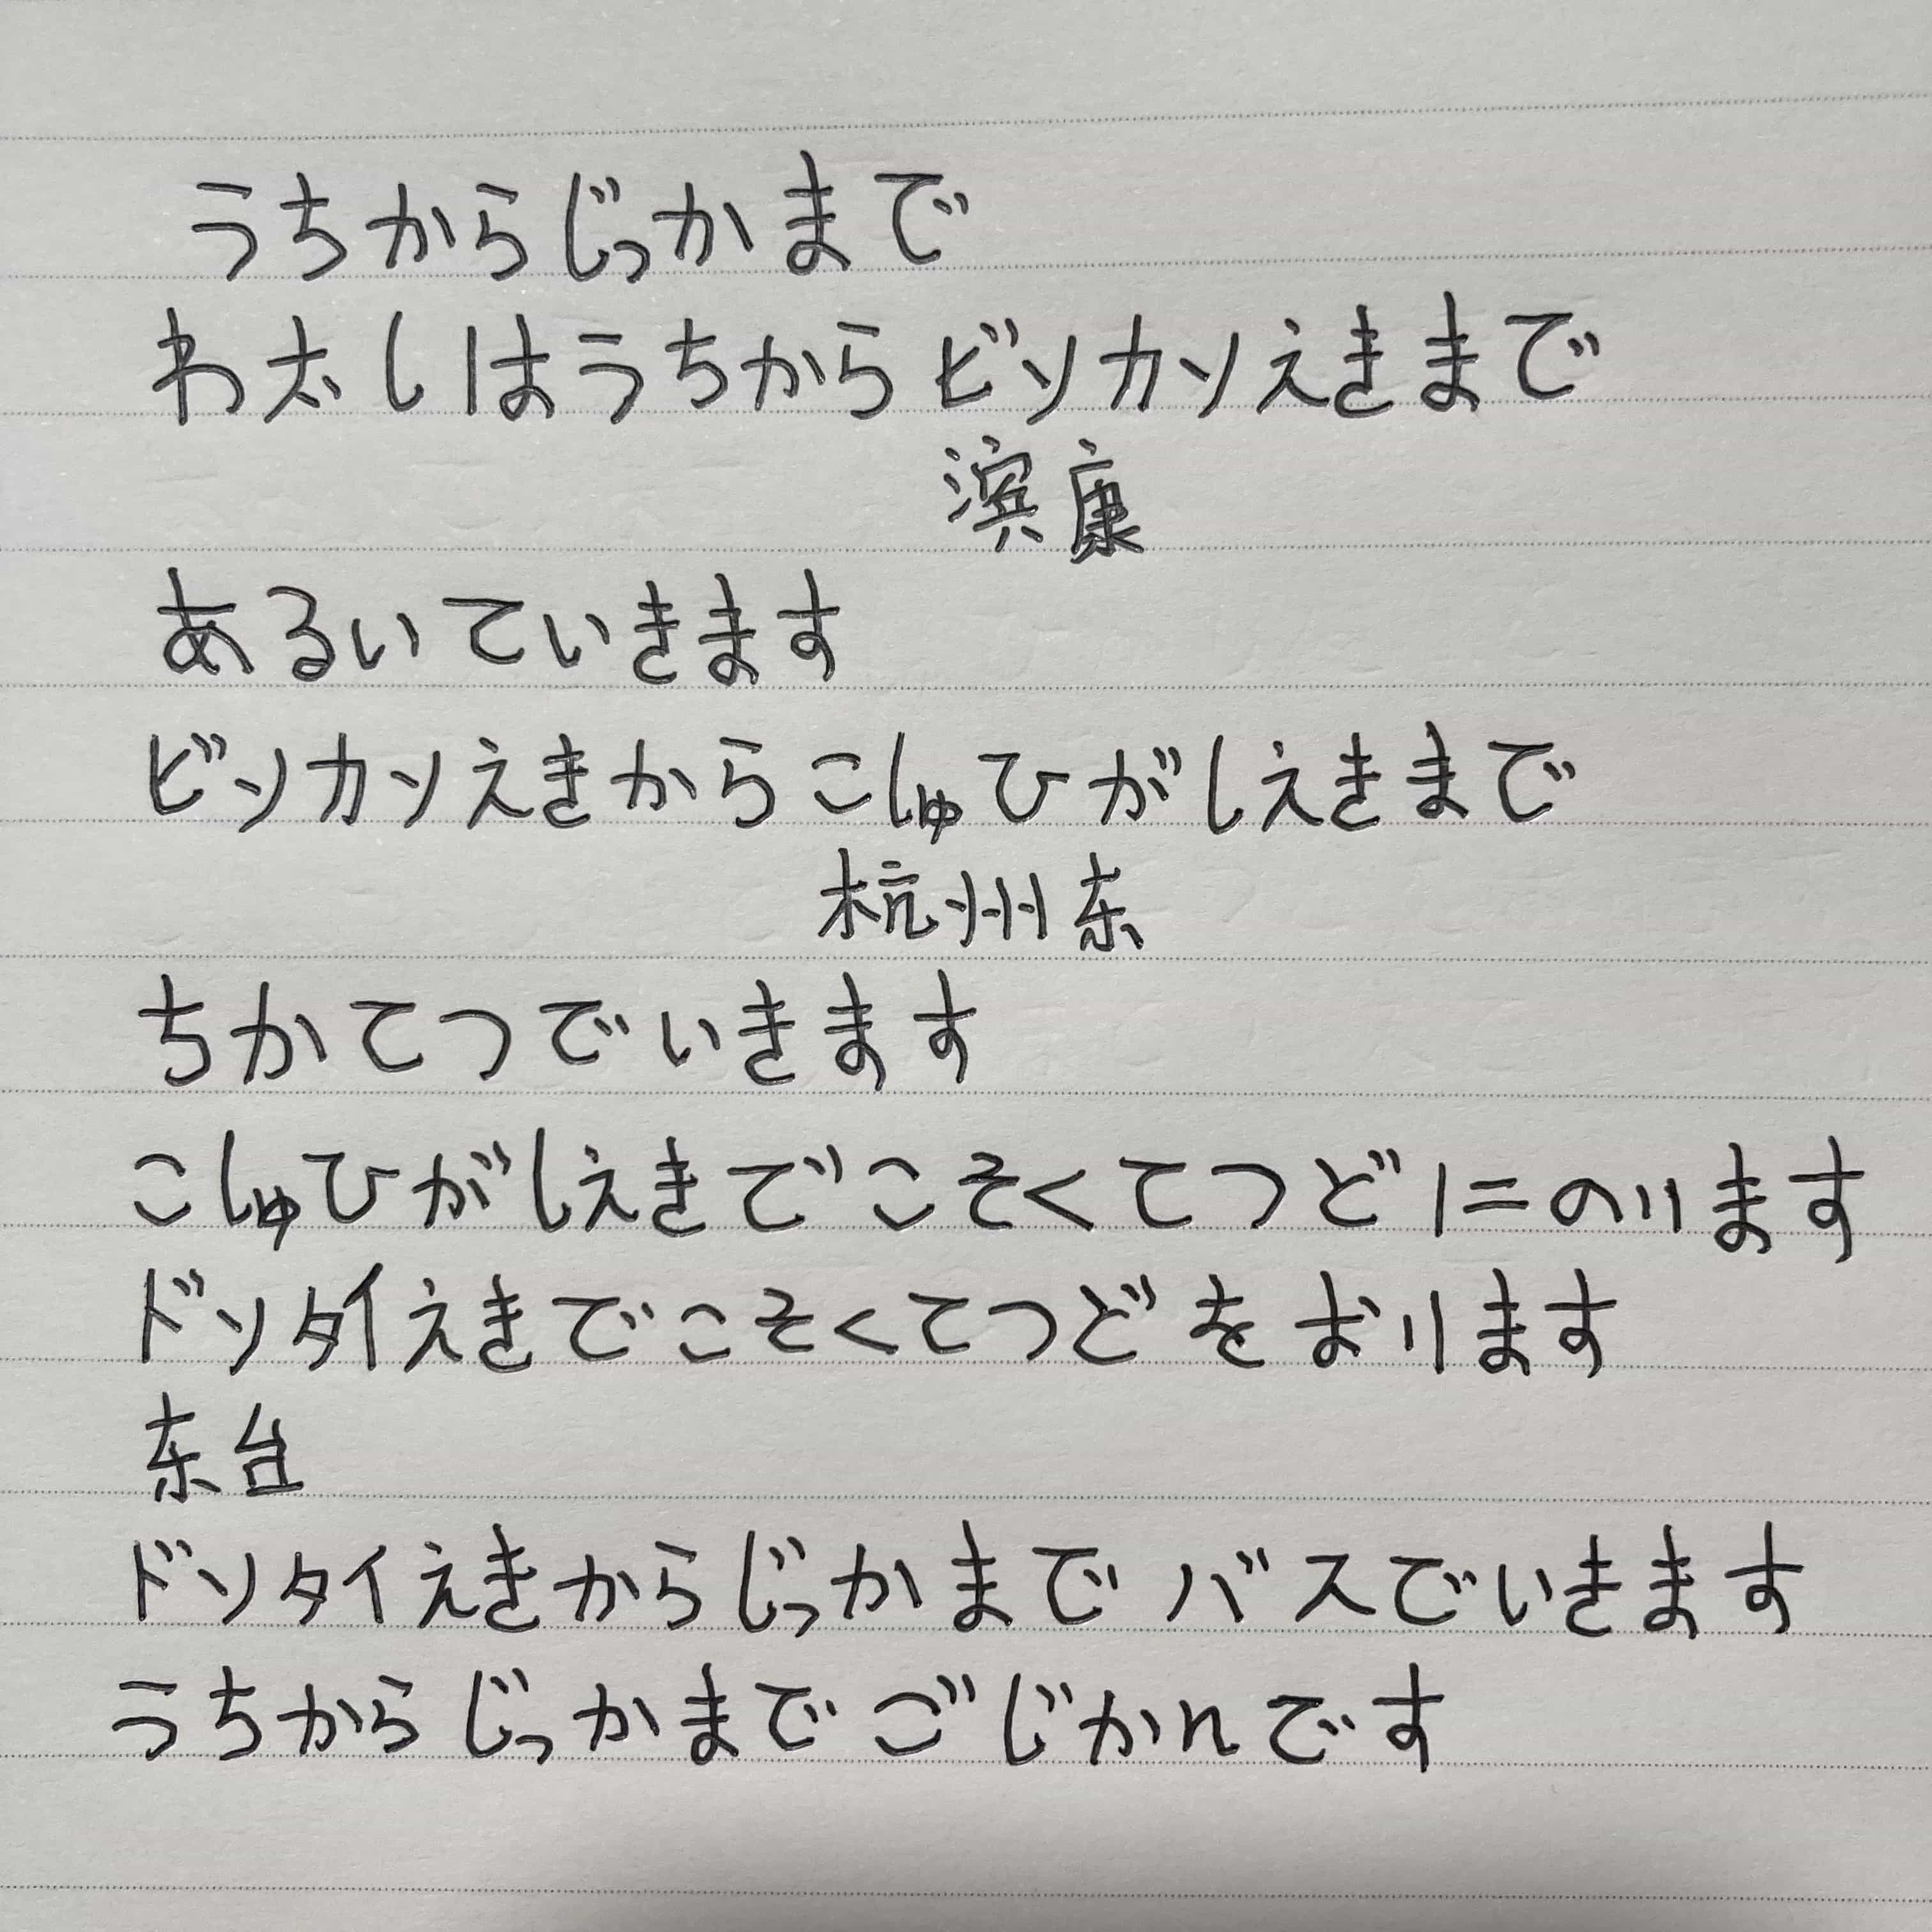 うちからじっかまで
わ太しはうちからビンカンえきまで
滨康
あるいていきます
ビンカンえきからこしゅひがしえきまで
杭州东
ちかてつでいきます
こしゅひがしえきでこそくてつどにのります
ドンタイえきでこそくてつどをおります
东台
ドンタイえきからじっかまでバスでいきます
うちからじっかまでごじかんです